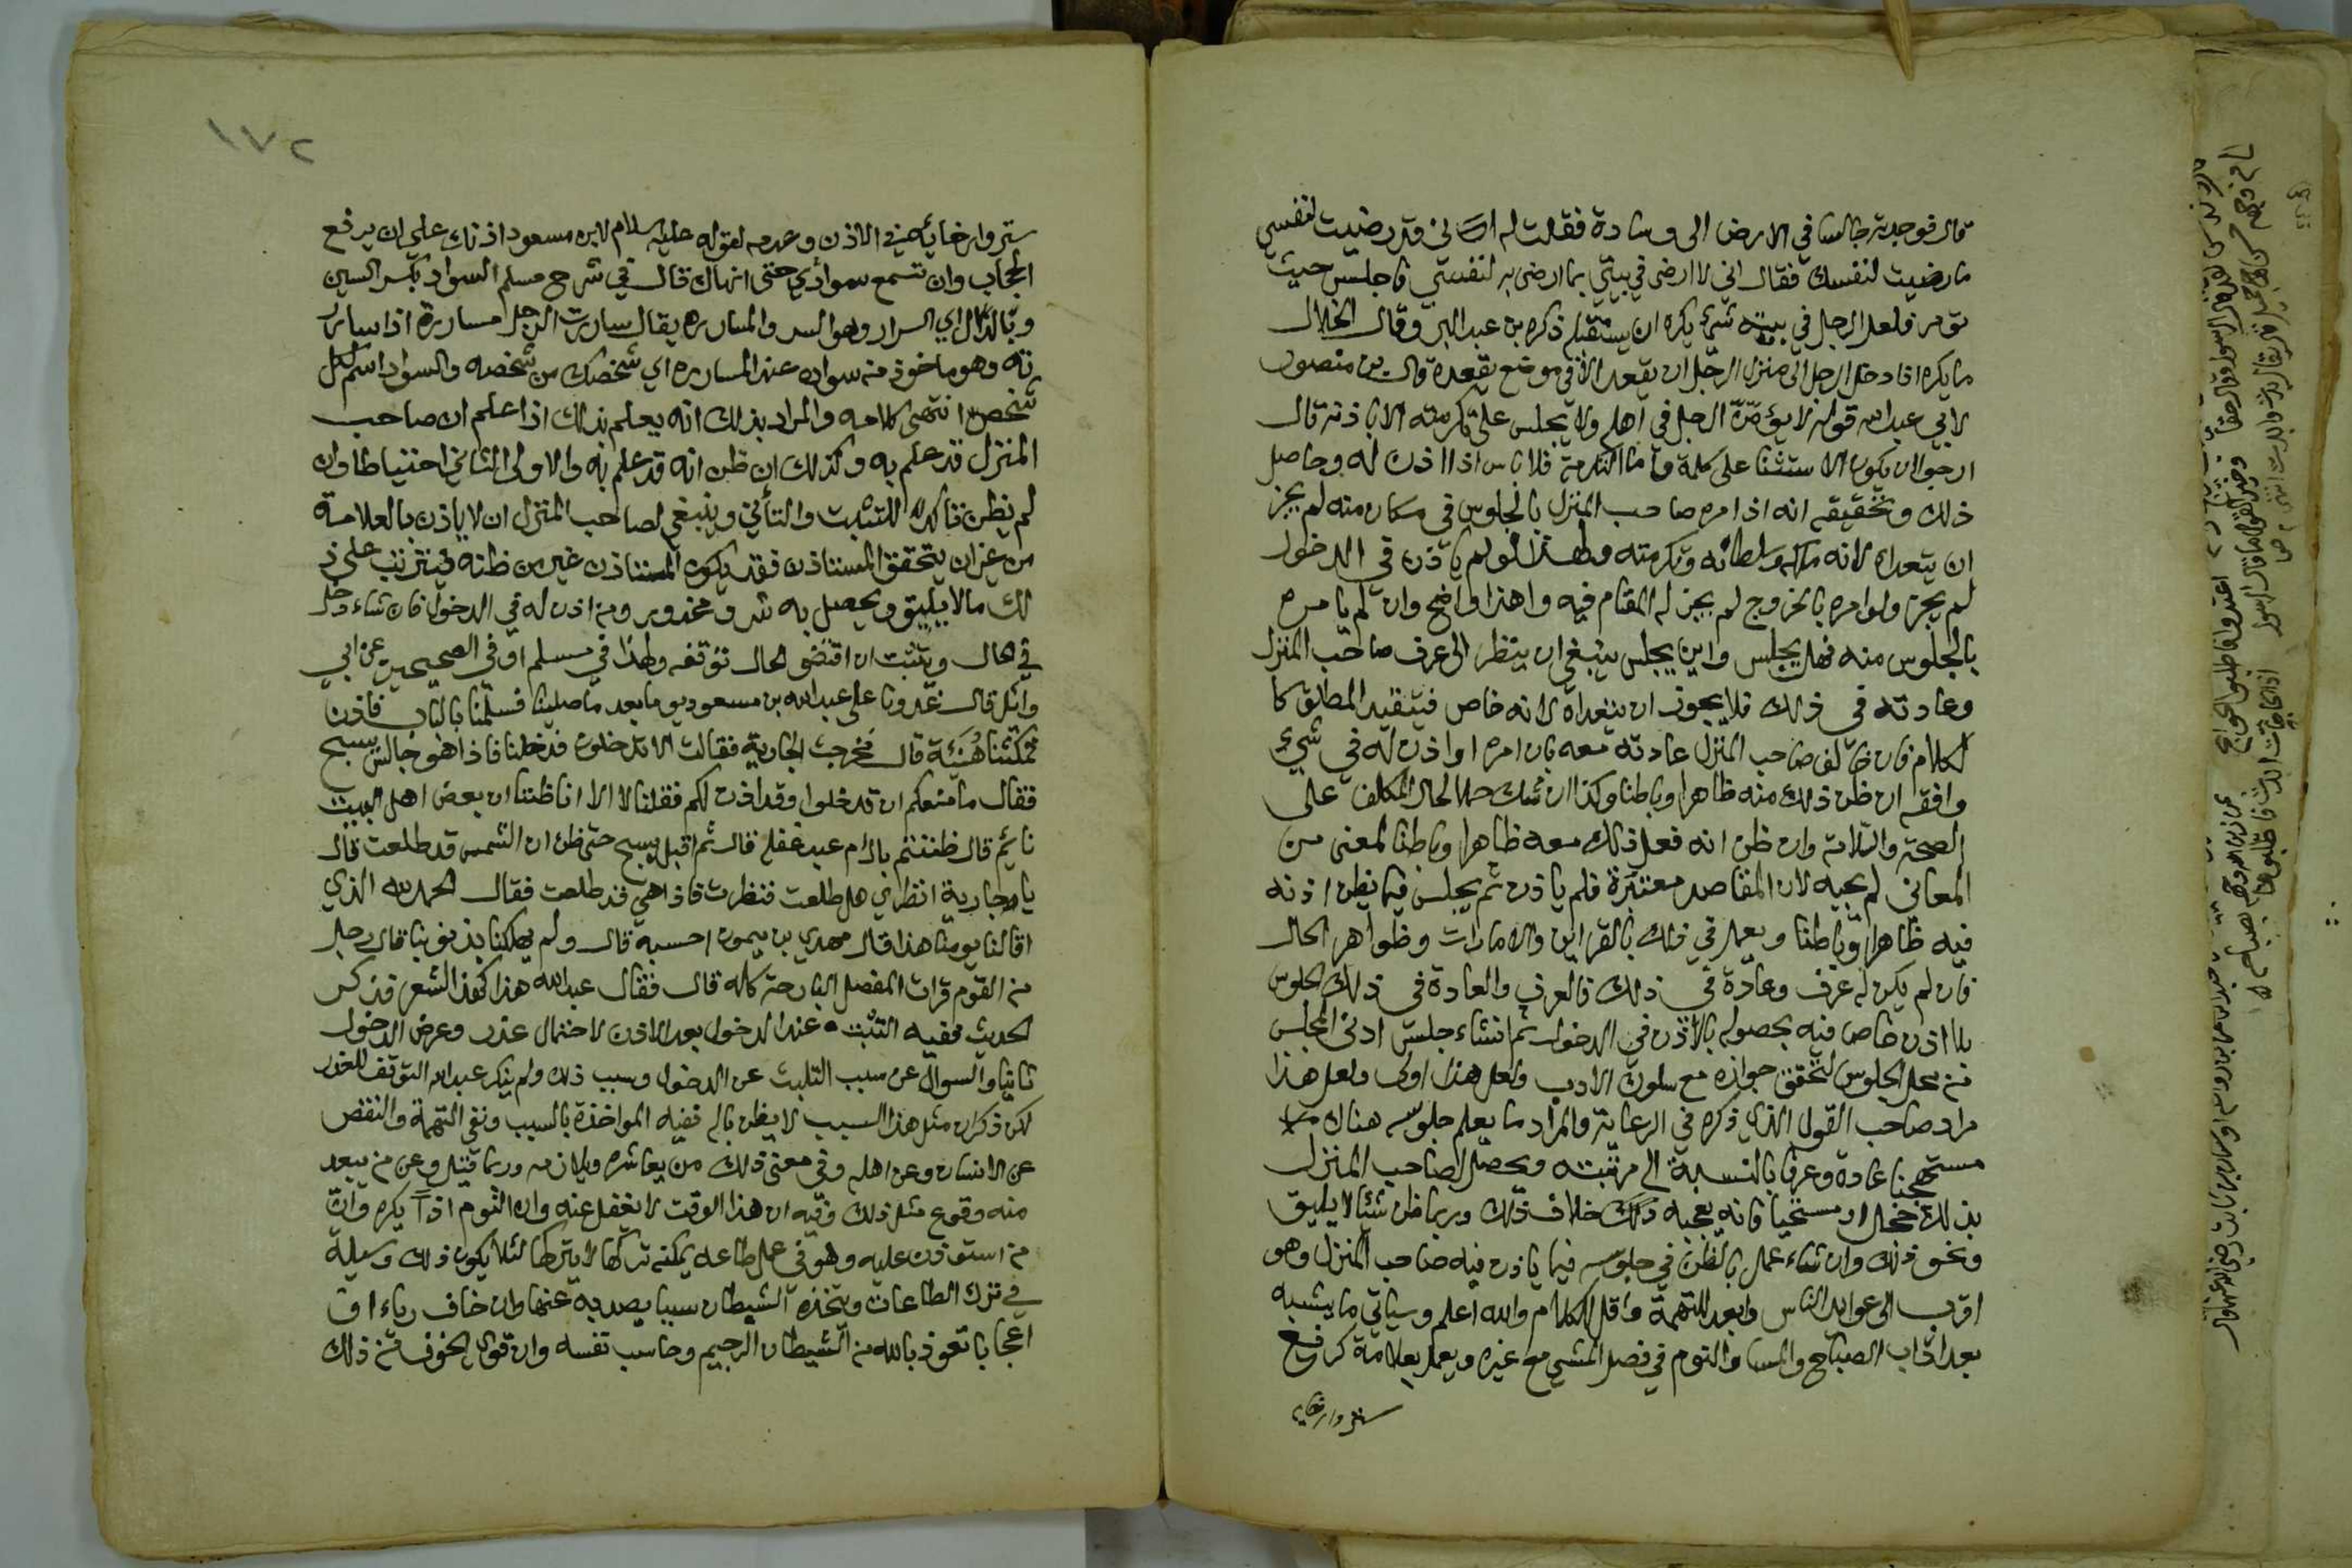 قال فوجدته جالسا في الارض الى وسادة فقلت له اني قد رضيت لنفسي
ما رضيت لنفسك فقال اني لا ارضى في بيتي بما ارضى به لنفسي فاجلس حيث
تؤمر فلعل الرجل في بيته شئ يكره ان يستقبله ذكره بن عبد البر وقال الخلال
ما يكره اذا دخل الرجل الى منزل الرجل ان يقعد الا في موضع يقعده قال بن منصور
لابي عبد الله قوله لا يؤمّ الرجل في اهله ولا يجلس على تكرمته الا باذنه قال
ارجو ان يكون الاستثنا على كله واما التكرمة فلا باس اذا اذن له وحاصل
ذلك وتحقيقه انه اذا امره صاحب المنزل بالجلوس في مكان منه لم يجز
ان يتعداه لانه ملكه وسلطانه وتكرمته ولهذا لو لم ياذن في الدخول
لم يجز ولو امره بالخروج لم يجز له المقام فيه وهذا واضح وان لم يامره
بالجلوس منه فهل يجلس واين يجلس ينبغي ان ينظر الى عرف صاحب المنزل
وعادته في ذلك فلا يجوز ان يتعداه لانه خاص فيتقيد المطلق كا
لكلام فان خالف صاحب المنزل عادته معه بان امره او اذن له في شيء
وافقه ان ظن ذلك منه ظاهرا وباطنا وكذا ان شك حملا لحال المكلف على
الصحة والسلامة وان ظن انه فعل ذلك معه ظاهرا لا باطنا لمعنى من
المعاني لم يجبه لان المقاصد معتبرة فلم ياذن ثم يجلس فيما يظن اذنه
فيه ظاهرا وباطنا ويعمل في ذلك بالقراين والامارات وظواهر الحال
فان لم يكن له عرف وعادة في ذلك فالعرف والعادة في ذلك الجلوس
بلا اذن خاص فيه بحصوله بالاذن في الدخول ثم ان شاء جلس ادنى المجلس
من محل الجلوس لتحقق جوازه مع سلوك الادب ولعل هذا اولى ولعل هذا
مراد صاحب القول الذي ذكره في الرعاية والمراد ما يعلم جلوسه هناك
مستهجنا عادة وعرفا بالنسبة الى مرتبته ويحصل لصاحب المنزل
بذلك خجل او مستحيا فانه يعجبه ذلك خلاف ذلك وربما ظن شيئا لا يليق
ونحو ذلك وان شاء عمل بالظن في جلوسه فيما ياذن فيه صاحب المنزل وهو
اقرب الى عوايد الناس وابعد للتهمة واقل للكلام والله اعلم وسياتي ما يشبهه
بعد اداب الصباح والمسا والنوم في فصل المشي مع غيره ويعمل بعلامة كرفع
ستر وارخايه
١٧٢
ستر وارخائه في الاذن وعدمه لقوله عليه السلام لابن مسعود اذنك علي ان يرفع
الحجاب وان تسمع سوادي حتى انهاك قال في شرح مسلم السواد بكسر السين
وبالدال اي السرار وهو السر والمساررة يقال ساررت الرجل مساررة اذا سار
ته وهو ماخوذ منه سواده عند المساررة اي شخصك من شخصه والسواد اسم لكل
شخص انتهى كلامه والمراد بذلك انه يعلم بذلك اذا علم ان صاحب
المنزل قد علم به وكذلك ان ظن انه قد علم به والاولى التاني احتياطا وان
لم يظن تاكد للتثبت والتأني وينبغي لصاحب المنزل ان لا ياذن بالعلامة
من غير ان يتحقق المستاذن فقد يكون المستاذن غير من ظنه فيترتب على ذ
لك ما لا يليق ويحصل به شر ومحذور ومن اذن له في الدخول فان شاء دخل
في الحال ويتثبت ان اقتضى الحال توقفه ولهذا في مسلم او في الصحيحين عن ابي
وائل قال غدونا على عبد الله بن مسعود يوما بعد ما صلينا فسلمنا بالباب فاذن
فمكثنا هُنَيَّة قال فخرجت الجارية فقالت الا تدخلون فدخلنا فاذا هو جالس يسبح
فقال ما منعكم ان تدخلوا وقد اذن لكم فقلنا لا الا انا ظننا ان بعض اهل البيت
نائم قال ظننتم بال ام عبد غفلة قال ثم اقبل يسبح حتى ظن ان الشمس قد طلعت قال
يا جارية انظري هل طلعت فنظرت فاذا هي قد طلعت فقال الحمد لله الذي
اقالنا يومنا هذا قال مهدي بن ميمون احسبه قال ولم يهلكنا بذنوبنا قال رجل
من القوم قرات المفصل البارحة كله قال فقال عبد الله هذا كهذ الشعر فذكر
الحديث ففيه التثبت عند الدخول بعد الاذن لاحتمال عذر وعرض الدخول
ثانيا والسوال عن سبب التلبث عن الدخول وسبب ذلك ولم ينكر عبد الله التوقف للعذر
لكن ذكر ان مثل هذا السبب لا يظن باله ففيه المواخذة بالسبب ونفي التهمة والنقص
عن الانسان وعن اهله وفي معنى ذلك من يعاشره ويلازمه وربما قيل وعن من يبعد
منه وقوع مثل ذلك وفيه ان هذا الوقت لا يغفل عنه وان النوم اذًا يكره وان
من استؤذن عليه وهو في عمل طاعة يمكنه تركها لا يتركها لئلا يكون ذلك وسيلة
في ترك الطاعات ويتخذه الشيطان سببا يصد به عنها وان خاف رياء او
اعجابا تعوذ بالله من الشيطان الرجيم وحاسب نفسه وان قوي الخوف فمن ذلك